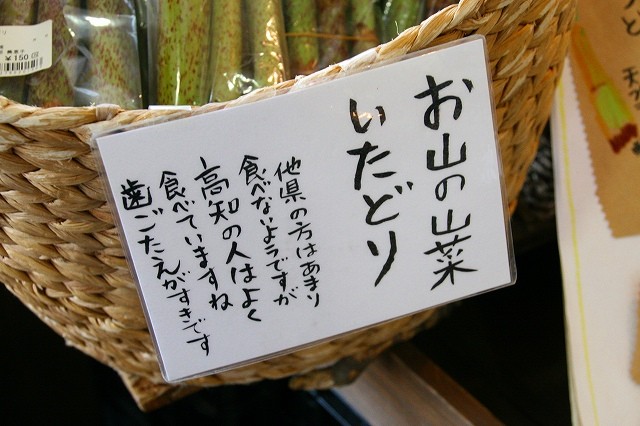 お山の山菜
いたどり
他県の方はあまり
食べないようですが
高知の人はよく
食べていますね
歯ごたえがすきです
¥150